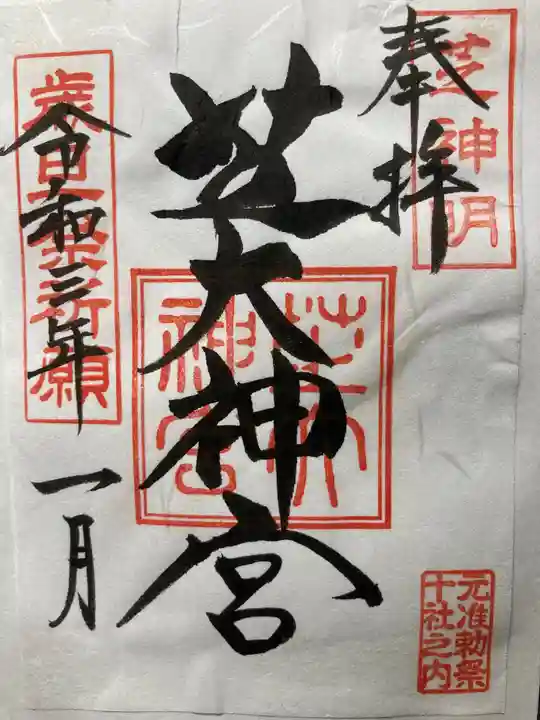 奉拝
芝神明
芝大神宮
芝大神宮
令和三年
一月
元准勅祭
十社之内